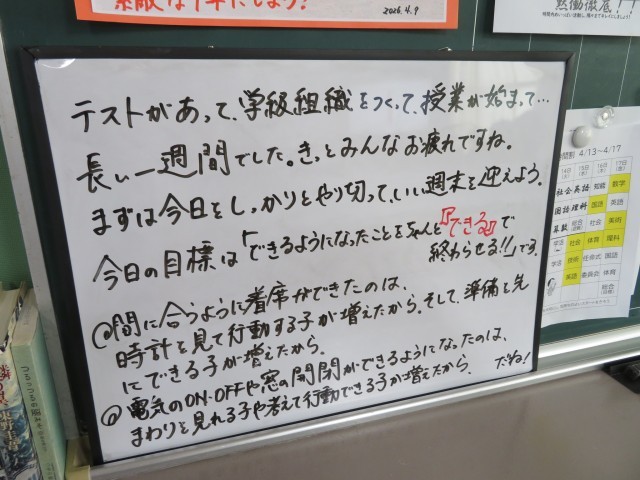 素敵な1年にしよう!
2026.4.9
黙働徹底!!
テストがあって、学級組織をつくって、授業が始まって…
長い一週間でした。きっとみんなお疲れですね。
まずは今日をしっかりとやり切って、いい週末を迎えよう。
今日の目標は「できるようになったことをちゃんと『できる』で
終わらせる!!」です。
◎間に合うように着席ができたのは、
時計を見て行動する子が増えたから。そして、準備を先
にできる子が増えたから。
◎電気のON・OFFや窓の開閉ができるようになったのは、
まわりを見れる子や考えて行動できる子が増えたから。 だね!
時間割 4/13〜4/17
社会 英語 知能 数学
国語 理科 国語 英語
算数 総合 社会 英語
学活 社会 体育 理科
学活 技術 任命式 国語
英語 委員会 体育
総合
つるつるの脳みそ